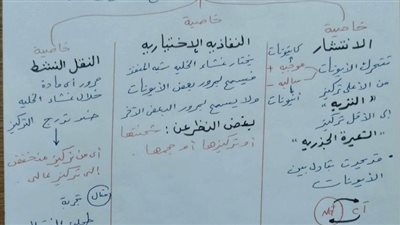 خاصية
الانتشار
تتحرك الأيونات
من الأعلى تركيز
"التربة"
إلى الأقل تركيز
"الشعيرة الجذرية"
قد يحدث تبادل بين
الأيونات
كاتيونات
موجبه +
سالبه -
أنيونات
خاصية
النفاذيه الإختياريه
يختار غشاء الخليه شبه المنفذ
فيسمح لمرور بعض الأيونات
ولا يسمح لمرور البعض الآخر
بغض النظر عن: شحنتها
أو تركيزها أو حجمها.
خاصية
النقل النشط
مرور أى مادة
خلال غشاء الخليه
ضد تدرج التركيز
أى من تركيز منخفض
إلى تركيز عالى
مثال تجربة